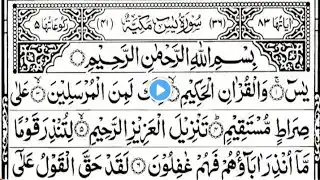 اٰيَاتُهَا ٨٣ (٣٦) سُوْرَةُ يٰسٓ مَكِّيَّةٌ (٤١) رُكُوْعَاتُهَا ٥
بِسْمِ اللّٰهِ الرَّحْمٰنِ الرَّحِيْمِ
يٰسٓ ۝ وَالْقُرْاٰنِ الْحَكِيْمِ ۝ كَ لَمِنَ الْمُرْسَلِيْنَ ۝ عَلٰى
صِرَاطٍ مُّسْتَقِيْمٍ ۝ تَنْزِيْلَ الْعَزِيْزِ الرَّحِيْمِ ۝ لِتُنْذِرَ قَوْمًا
مَّاۤ اُنْذِرَ اٰبَآؤُهُمْ فَهُمْ غٰفِلُوْنَ ۝ لَقَدْ حَقَّ الْقَوْلُ عَلٰۤى